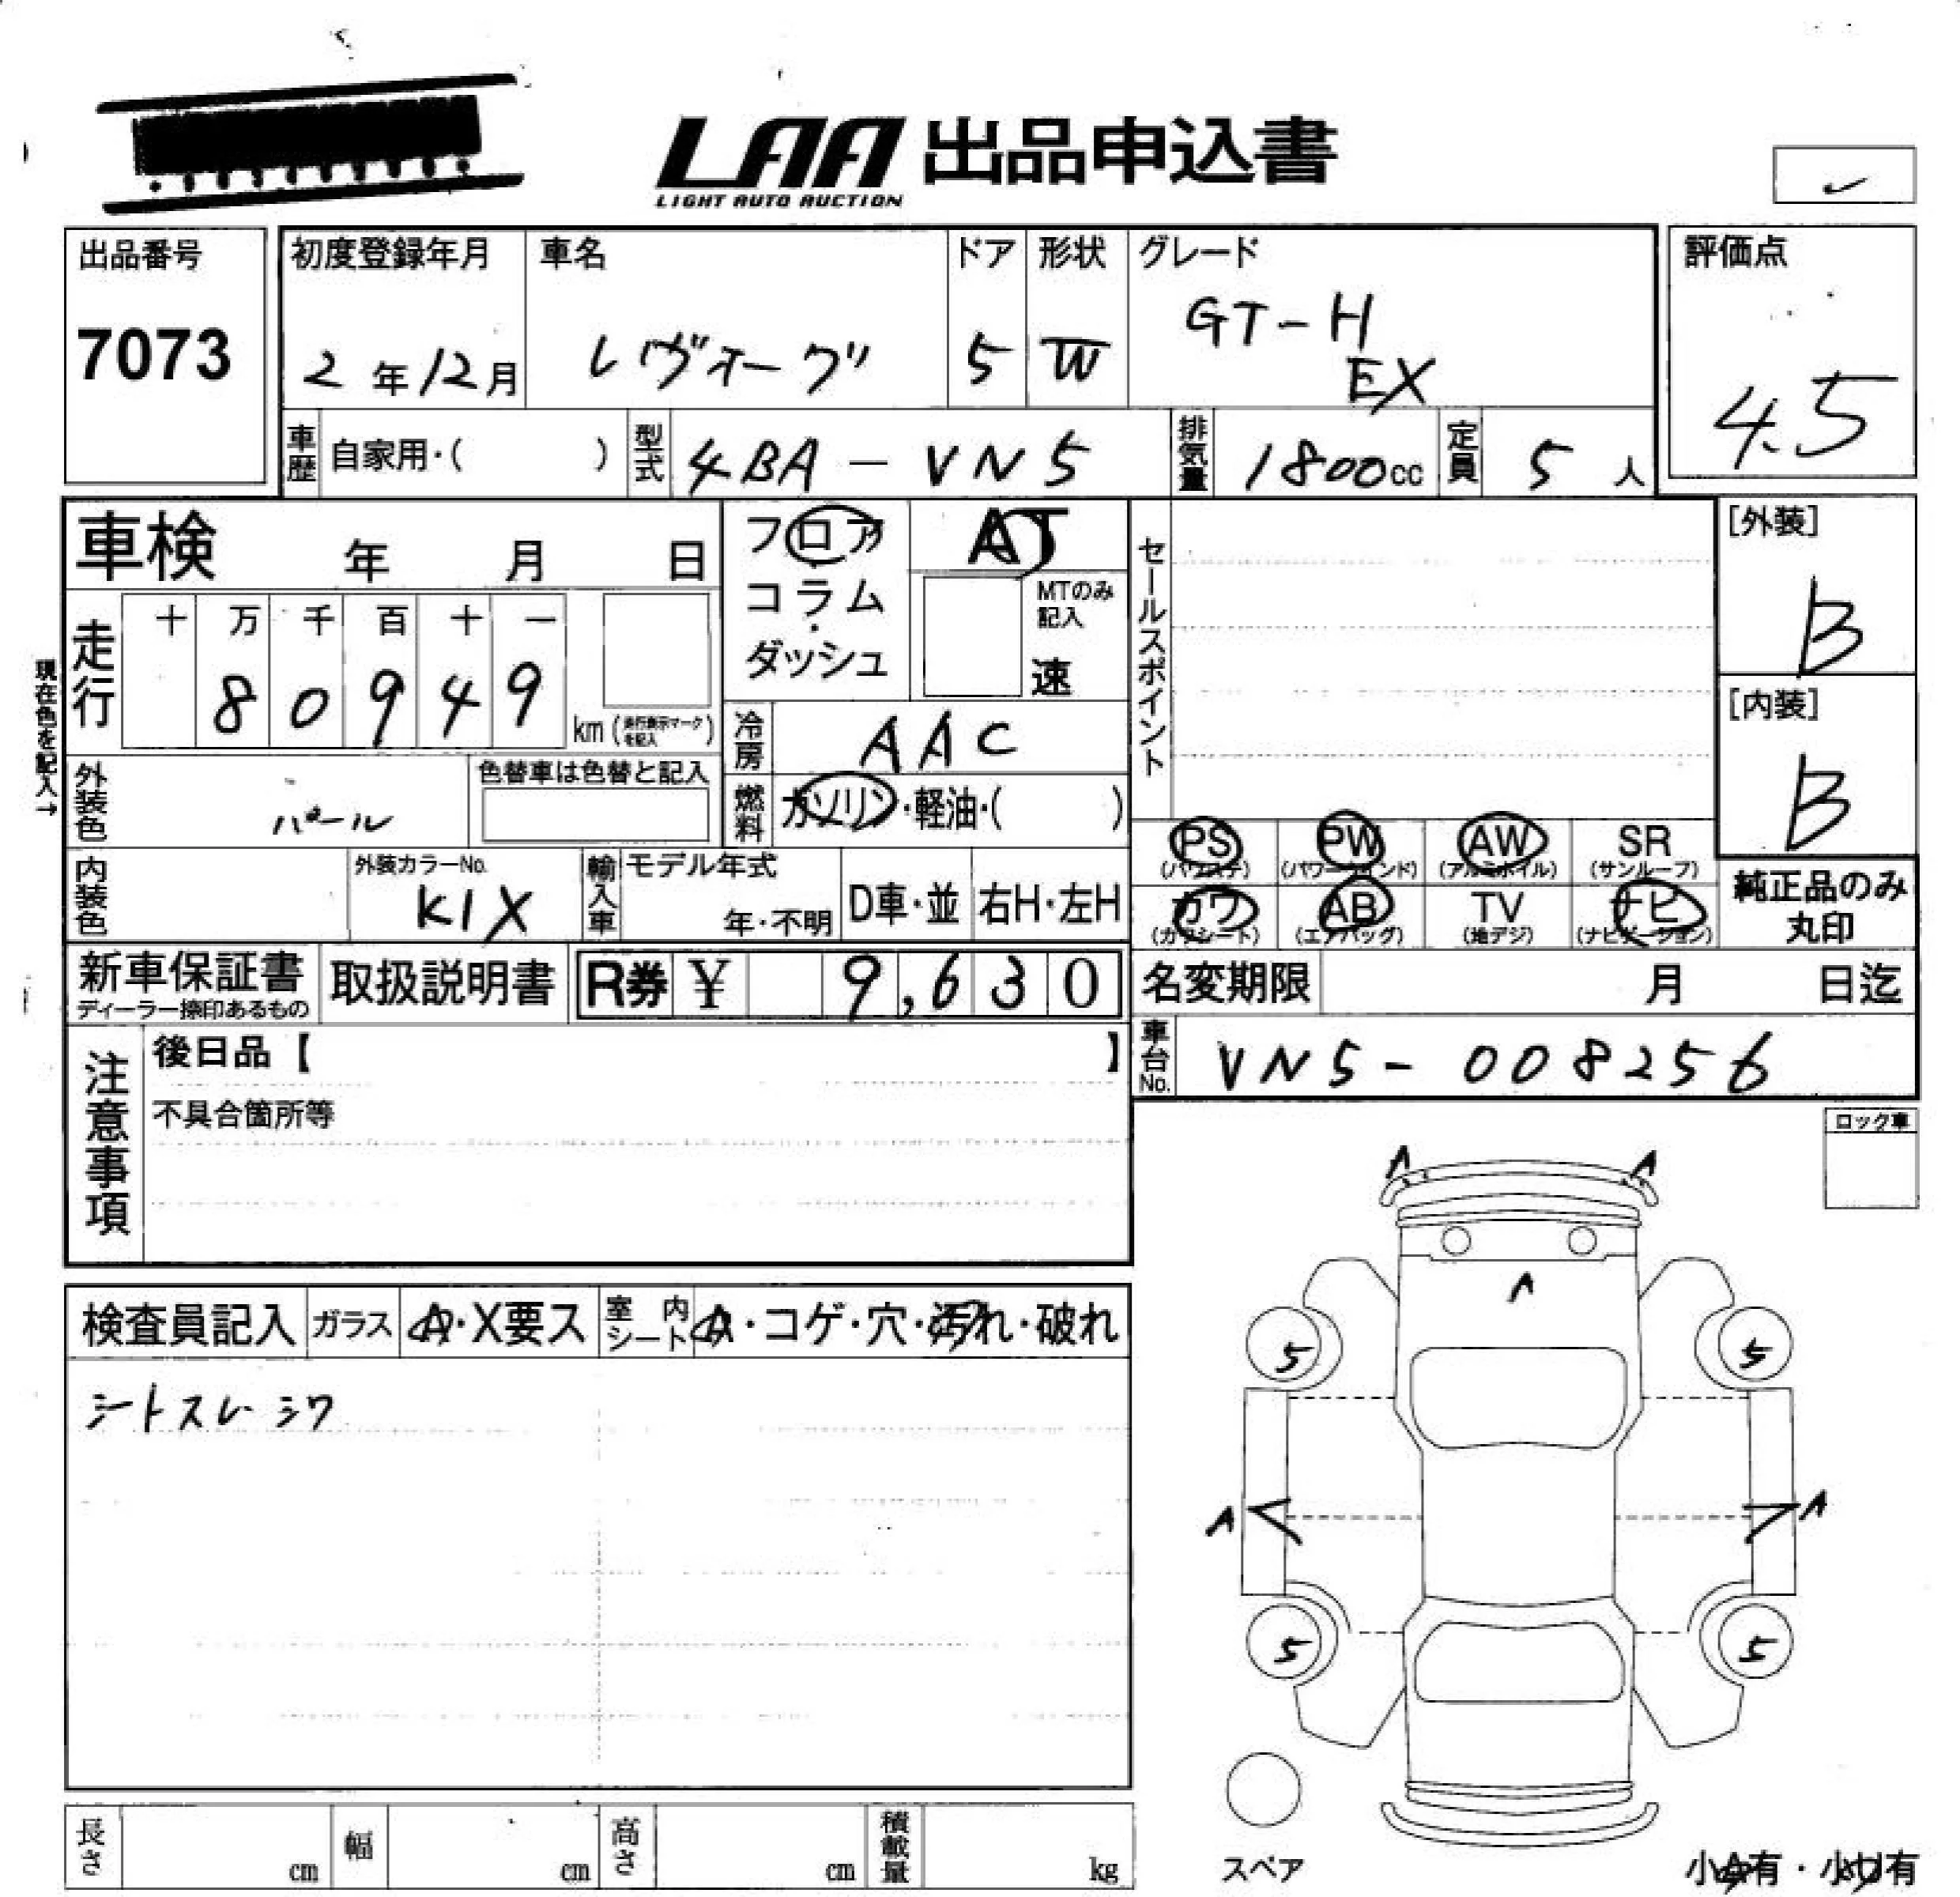 LAA 出品申込書
LIGHT AUTO AUCTION
出品番号
7073
初度登録年月
2年12月
車名
レヴォーグ
ドア
5
形状
W
グレード
GT-H
EX
評価点
4.5
車歴 自家用・( )
型式 4BA-VN5
排気量 1800cc
定員 5人
車検 年 月 日
現在色を記入→
走行
十 万 千 百 十 一
8 0 9 4 9
km (走行表示マークを記入)
フロア
コラム
ダッシュ
AT
MTのみ記入
速
冷房 AAC
燃料 ガソリン・軽油・( )
セールスポイント
[外装]
B
[内装]
B
外装色 パール
色替車は色替と記入
内装色
外装カラーNo.
K1X
輸入車
モデル年式
年・不明
D車・並
右H・左H
PS (パワステ)
PW (パワーウインド)
AW (アルミホイル)
SR (サンルーフ)
カワ (カワシート)
AB (エアバッグ)
TV (地デジ)
ナビ (ナビゲーション)
純正品のみ
丸印
新車保証書
ディーラー捺印あるもの
取扱説明書
R券 ¥ 9,630
名変期限 月 日迄
車台No. VN5-008256
注意事項
後日品【 】
不具合箇所等
ロック車
検査員記入
ガラス A・X要ス
室内シート A・コゲ・穴・汚れ・破れ
シートスレ シワ
A A
A
5 5
A A
5 5
スペア
小A有・小U有
長さ cm
幅 cm
高さ cm
積載量 kg